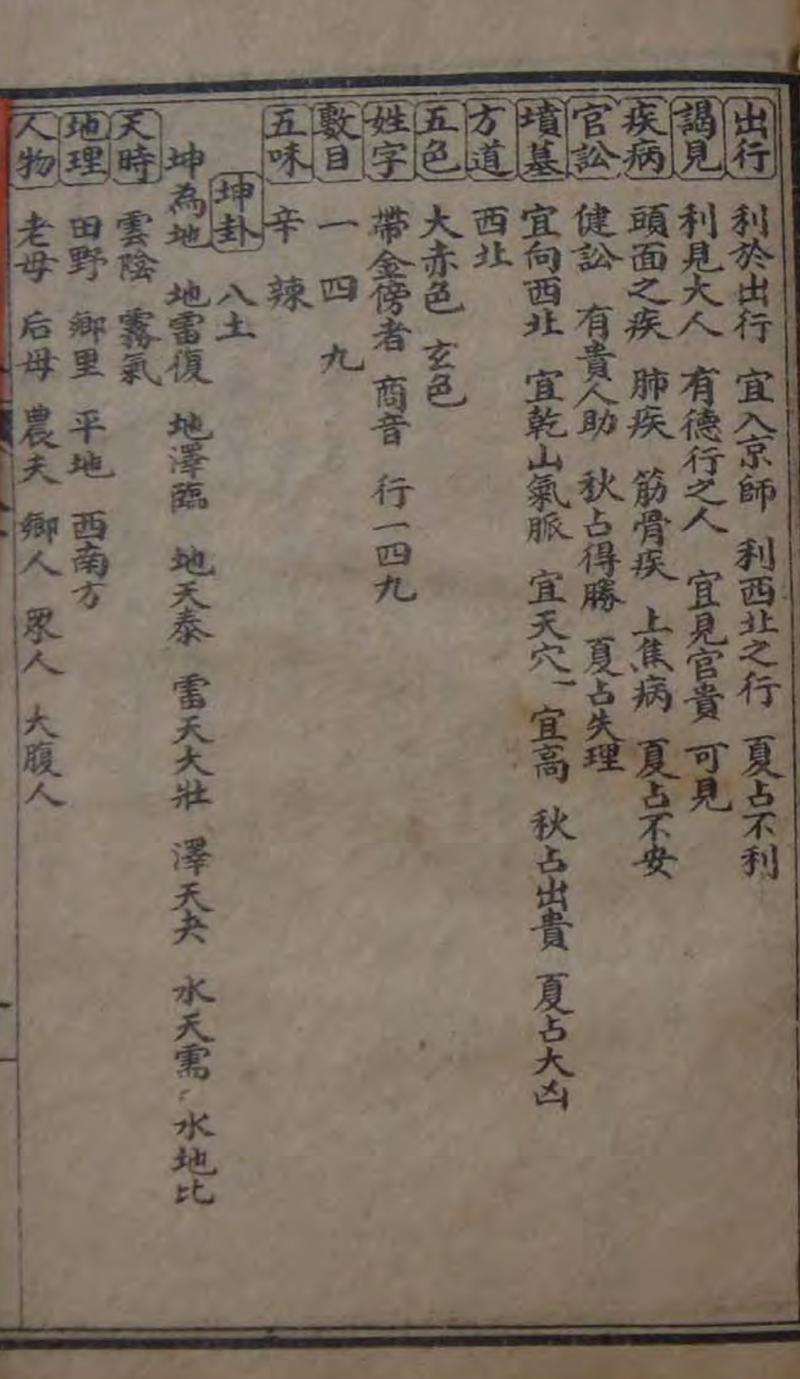 出行 利於出行 宜入京師 利西北之行 夏占不利
謁見 利見大人 有德行之人 宜見官貴 可見
疾病 頭面之疾 肺疾 筋骨疾 上焦病 夏占不安
官訟 健訟 有貴人助 秋占得勝 夏占失理
墳墓 宜向西北 宜乾山氣脈 宜天穴 宜高 秋占出貴 夏占大凶
方道 西北
五色 大赤色 玄色
姓字 帶金傍者 商音 行一四九
數目 一 四 九
五味 辛 辣
坤卦 八土
坤為地 地雷復 地澤臨 地天泰 雷天大壯 澤天夬 水天需 水地比
天時 雲陰 霧氣
地理 田野 鄉里 平地 西南方
人物 老母 后母 農夫 鄉人 眾人 大腹人